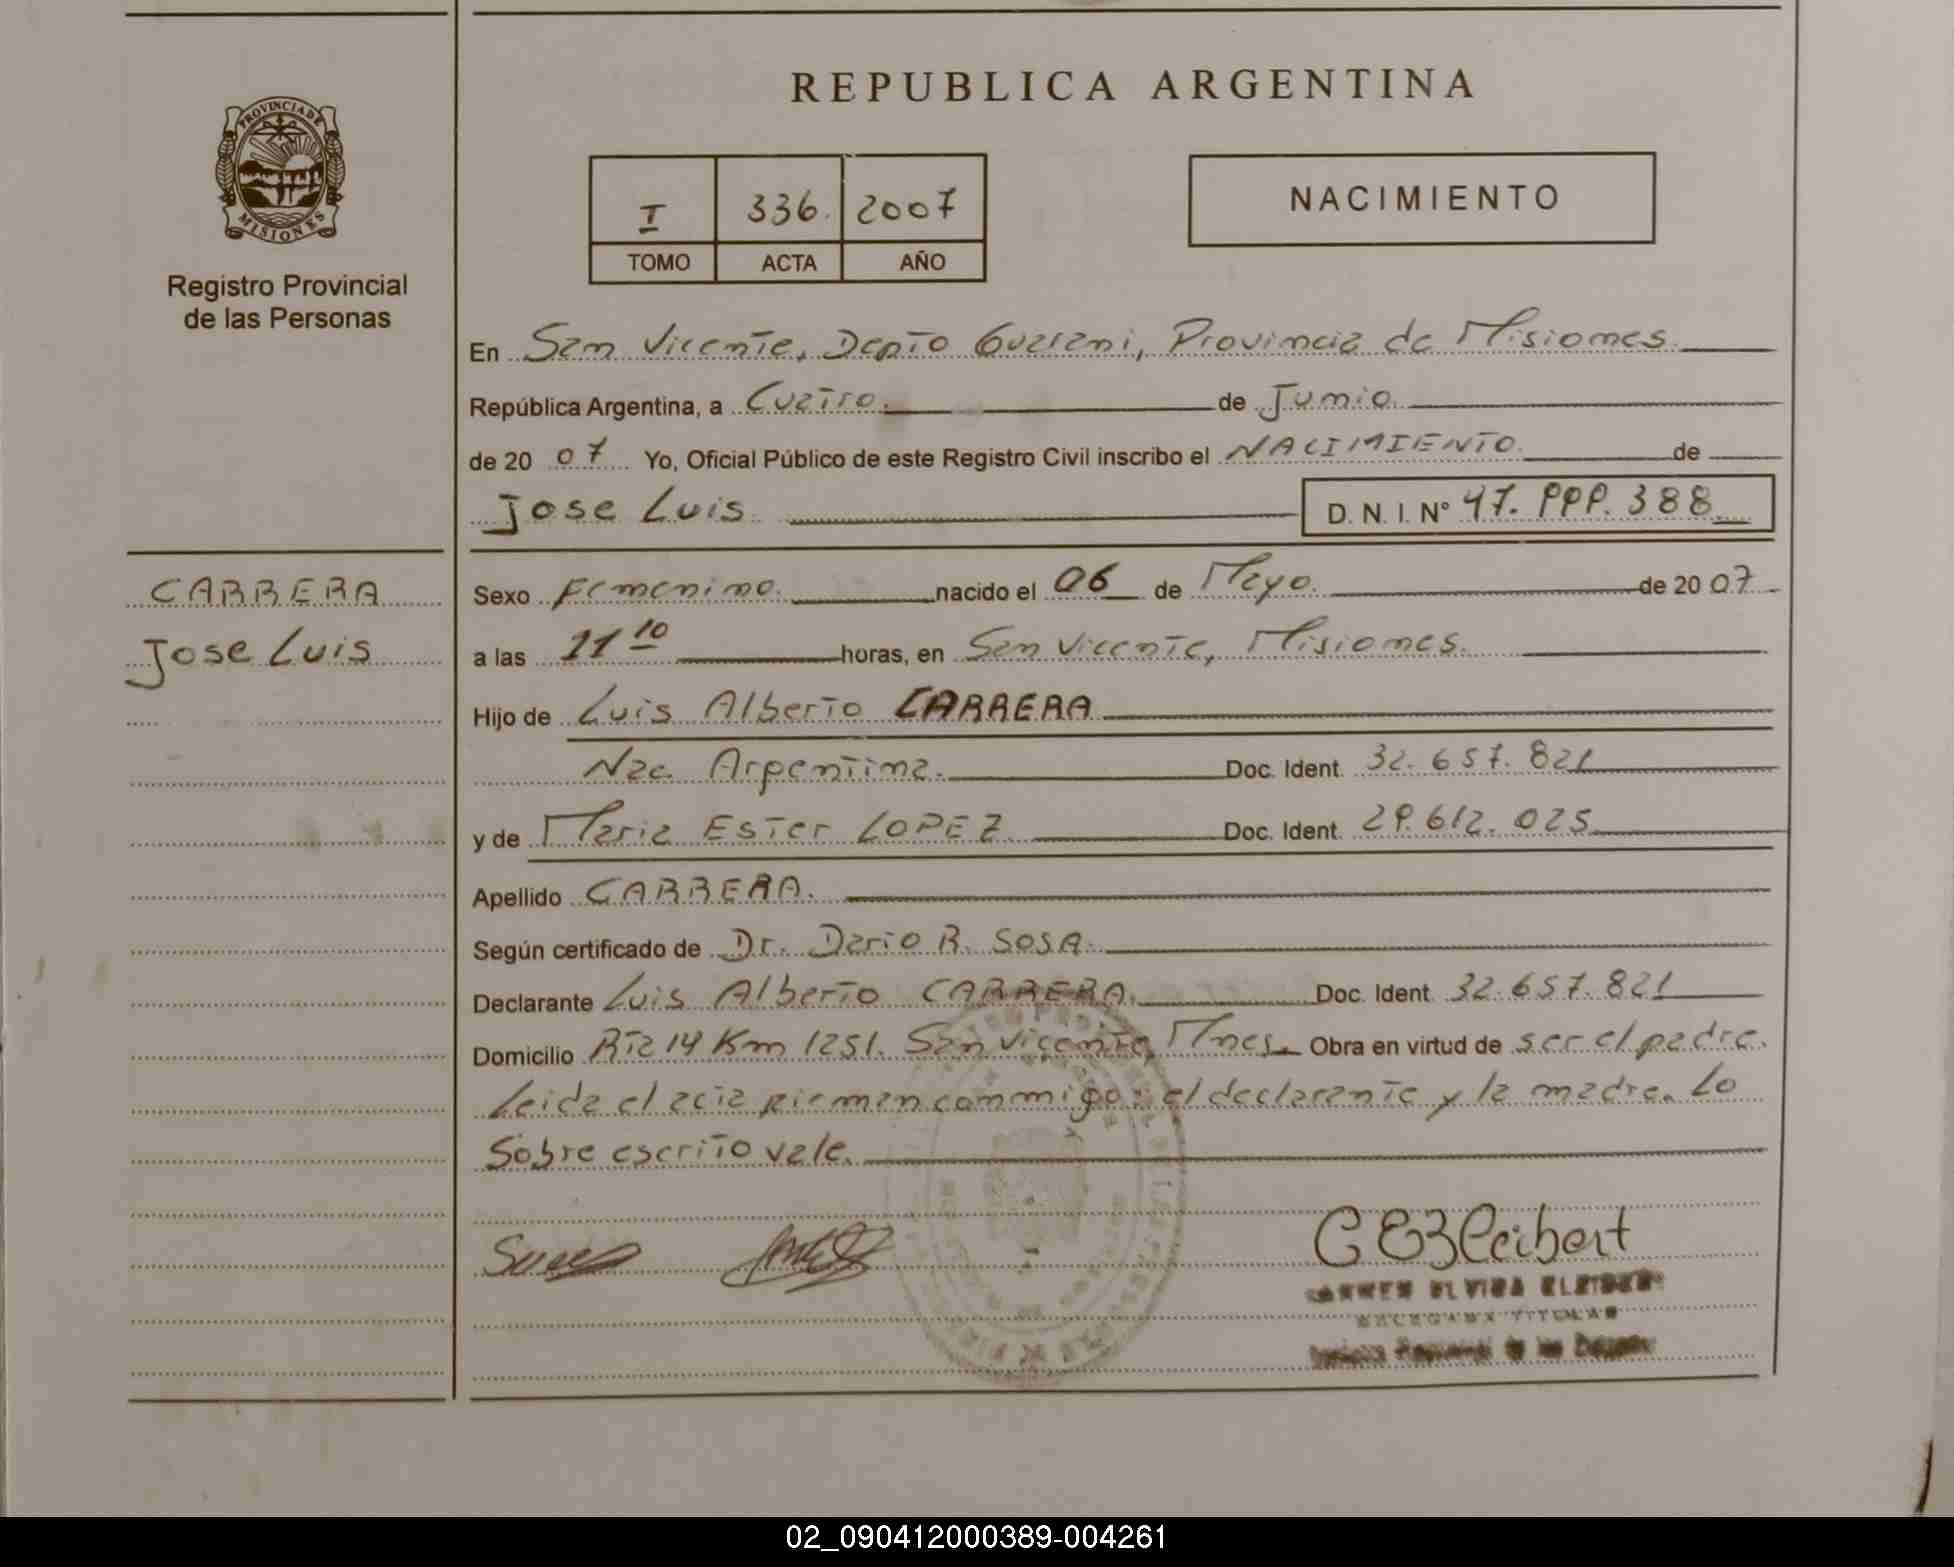 REPUBLICA ARGENTINA
PROVINCIA DE
MISIONES
Registro Provincial
de las Personas
I 336. 2007
TOMO ACTA AÑO
NACIMIENTO
En San Vicente, Depto Guarani, Provincia de Misiones.
República Argentina, a Cuatro. de Junio.
de 20 07 Yo, Oficial Público de este Registro Civil inscribo el NACIMIENTO. de
Jose Luis. D. N. I. N° 47. 999. 388
CARRERA
Jose Luis
Sexo Femenino. nacido el 06 de Mayo. de 20 07
a las 11 10 horas, en San Vicente, Misiones.
Hijo de Luis Alberto CARRERA
Nac. Argentina. Doc. Ident. 32. 657. 821
y de Maria Ester LOPEZ Doc. Ident. 29. 612. 025
Apellido CARRERA.
Según certificado de Dr. Dario R. SOSA.
Declarante Luis Alberto CARRERA. Doc. Ident. 32. 657. 821
Domicilio Rta 14 Km 1251. San Vicente, Mnes. Obra en virtud de ser el padre.
Leida el acta firman conmigo: el declarante y la madre. Lo
Sobre escrito vale.
C E Bleibert
ELVIRA
TITULAR
de las
02_090412000389-004261